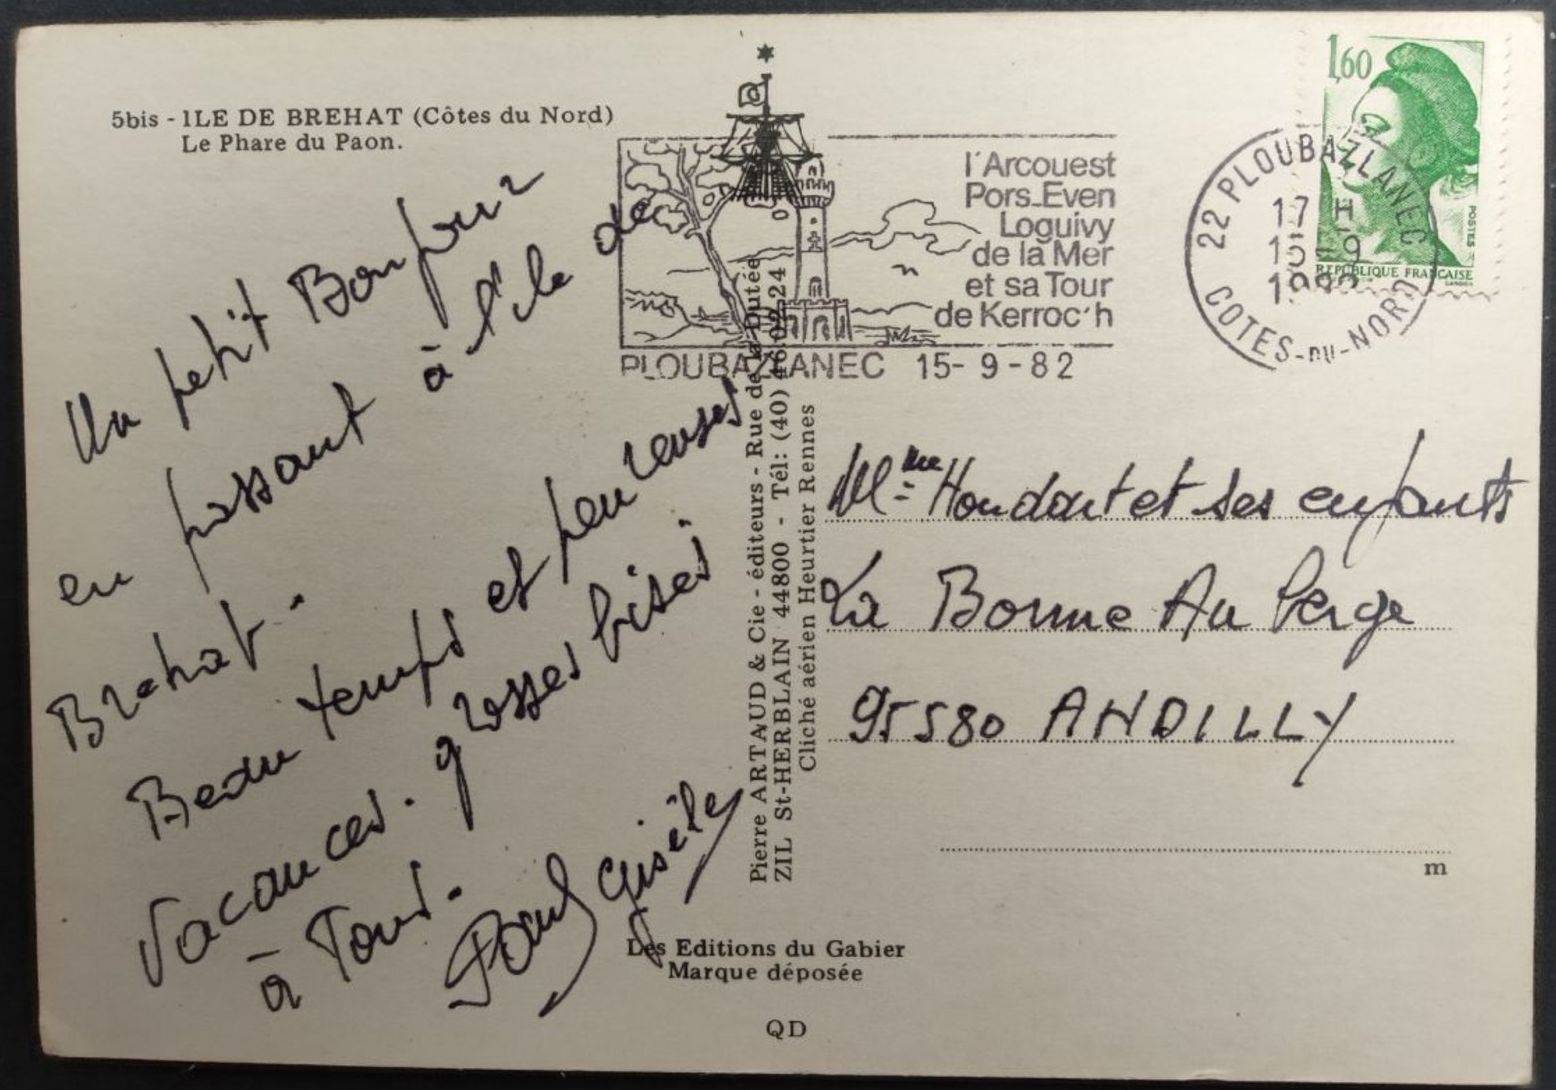 5bis - ILE DE BREHAT (Côtes du Nord)
Le Phare du Paon.
Un petit Bonjour
en passant à l'ile de
Brehat.
Beau temps et heureuses
vacances. grosses bises
à Tous.
Paul Gisèle
l'Arcouest
Pors-Even
Loguivy
de la Mer
et sa Tour
de Kerroc'h
PLOUBAZLANEC 15-9-82
22 PLOUBAZLANEC
17 H
15-9
1982
COTES-DU-NORD
1,60
POSTES
REPUBLIQUE FRANÇAISE
GANDON
Pierre ARTAUD & Cie - éditeurs - Rue de la Dutée
ZIL St-HERBLAIN 44800 - Tél: (40) 46.02.24
Cliché aérien Heurtier Rennes
Mme Houdart et ses enfants
La Bonne Auberge
95580 ANDILLY
m
Les Editions du Gabier
Marque déposée
QD